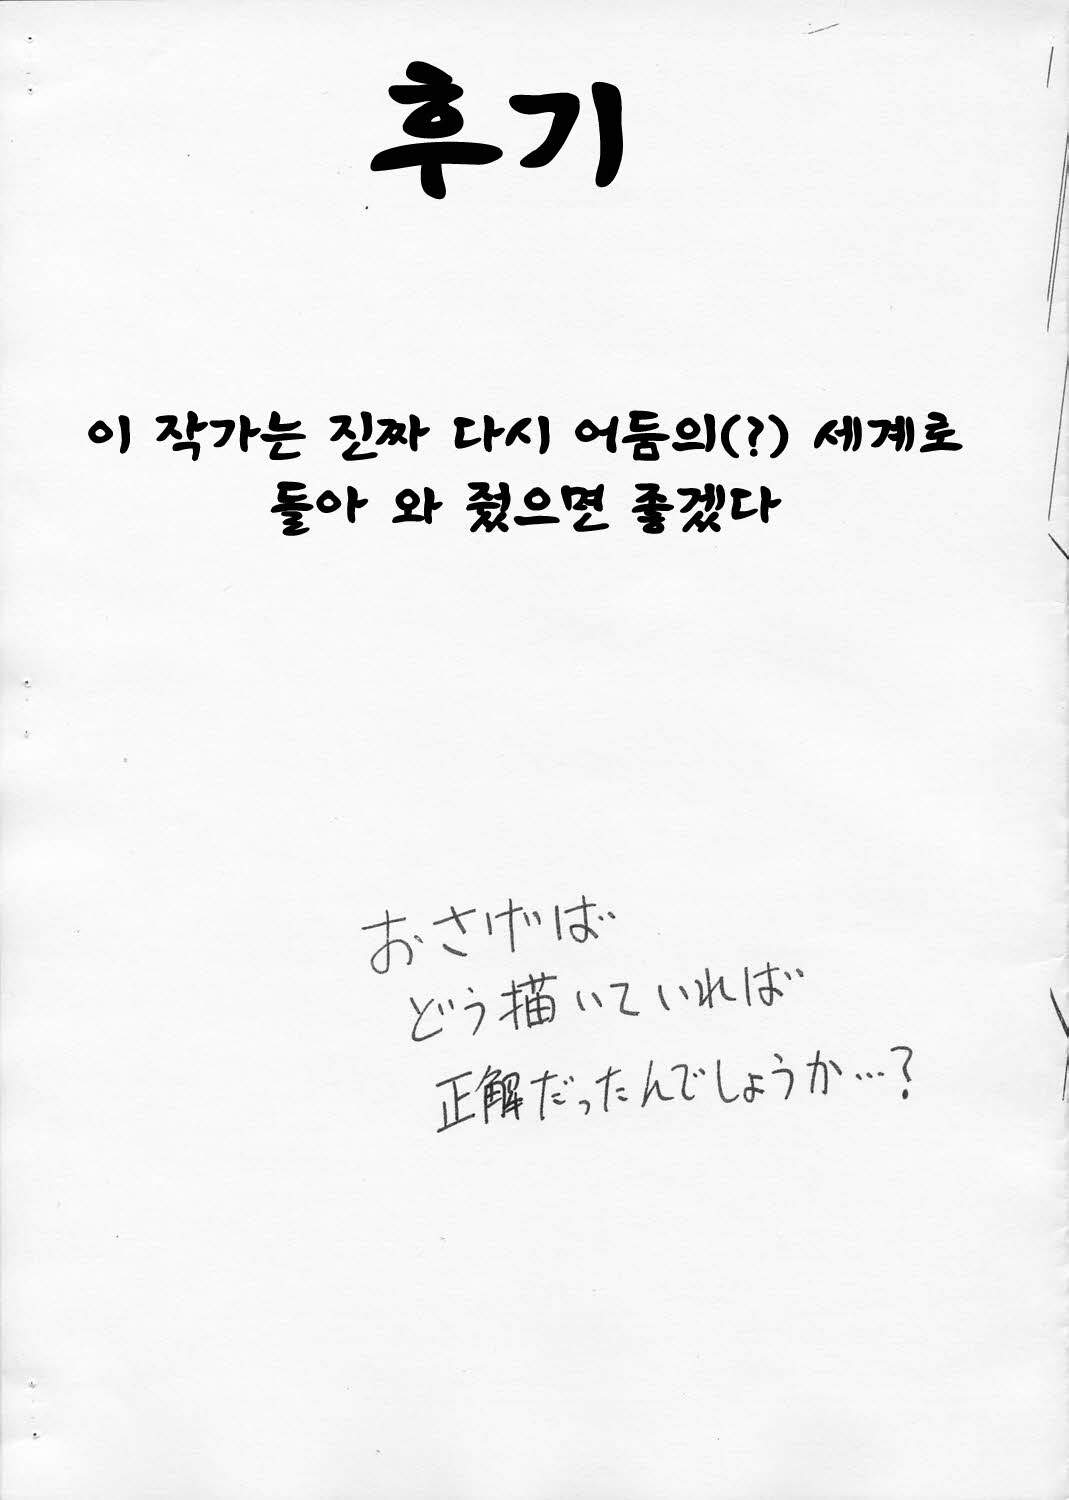 후기
이 작가는 진짜 다시 어둠의(?) 세계로
돌아 와 줬으면 좋겠다
おさげば
どう描いていれば
正解だったんでしょうか…?